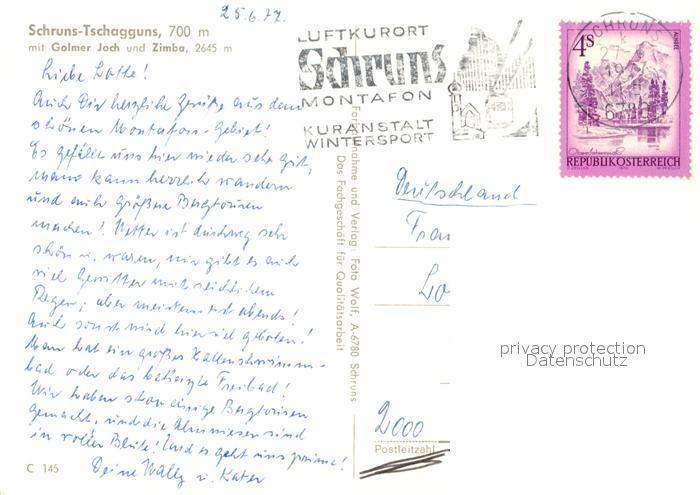 25.6.77.
Schruns-Tschagguns, 700 m
mit Golmer Joch und Zimba, 2645 m
Liebe Lotte!
Auch Dir herzliche Grüße aus dem
schönen Montafon-Gebiet!
Es gefällt uns hier wieder sehr gut,
man kann herrlich wandern
und auch größere Bergtouren
machen! Wetter ist durchweg sehr
schön u. warm, nur gibt es auch
viel Gewitter mit reichlichem
Regen; aber meistens erst abends!
Auch sonst wird hier viel geboten!
Man hat ein großes Hallenschwimm-
bad oder das beheizte Freibad!
Wir haben schon einige Bergtouren
gemacht, und die Almwiesen sind
in voller Blüte! Und es geht uns prima!
Deine Wally u. Kater
C 145
Farbaufnahme und Verlag: Foto Wolf, A-6780 Schruns
Das Fachgeschäft für Qualitätsarbeit
LUFTKURORT
Schruns
MONTAFON
KURANSTALT
WINTERSPORT
SCHRUNS
6780
4S
ALMSEE
REPUBLIK ÖSTERREICH
Deutschland
Frau
Lo
2000
Postleitzahl
privacy protection
Datenschutz